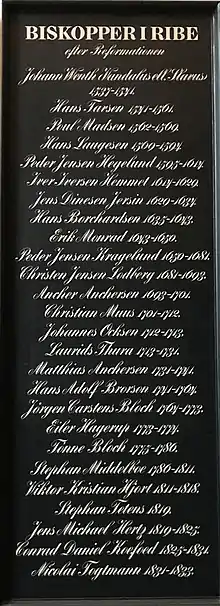 BISKOPPER I RIBE
efter Reformationen
Johann Wenth Vandalus ell. Slavus
1537-1541.
Hans Tavsen 1541-1561.
Poul Madsen 1562-1569.
Hans Laugesen 1569-1594.
Peder Jensen Hegelund 1595-1614.
Iver Iversen Hemmet 1614-1629.
Jens Dinesen Jersin 1629-1634.
Hans Borchardsen 1635-1643.
Erik Monrad 1643-1650.
Peder Jensen Kragelund 1650-1681.
Christen Jensen Lodberg 1681-1693.
Ancher Anchersen 1693-1701.
Christian Muus 1701-1712.
Johannes Ocksen 1712-1713.
Laurids Thura 1713-1731.
Matthias Anchersen 1731-1741.
Hans Adolf Brorson 1741-1764.
Jörgen Carstens Bloch 1764-1773.
Eiler Hagerup 1773-1774.
Tönne Bloch 1775-1786.
Stephan Middelboe 1786-1811.
Viktor Kristian Hjort 1811-1818.
Stephan Tetens 1819.
Jens Michael Hertz 1819-1825.
Conrad Daniel Koefoed 1825-1831.
Nicolai Fogtmann 1831-1833.